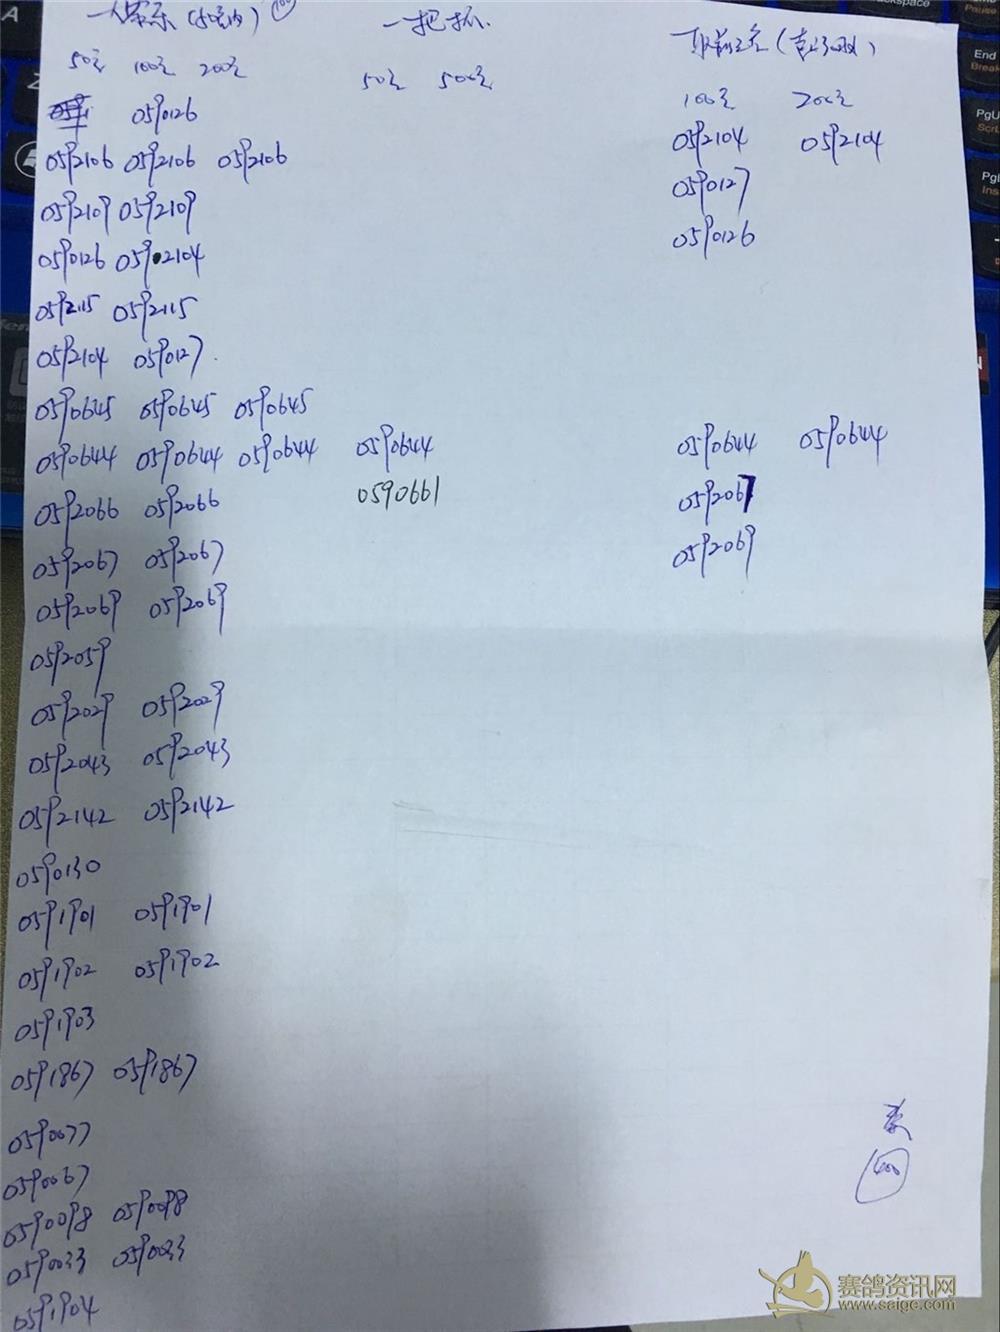 100
一把抓
50元 100元 200元 50元 500元
100元 200元
0590126
0592104 0592104
0592106 0592106 0592106
0590127
0592109 0592109
0590126
0590126 0592104
0592115 0592115
0592104 0590127
0590645 0590645 0590645
0590644 0590644 0590644 0590644 0590644 0590644
0592066 0592066 0590661 0592067
0592067 0592067 0592069
0592069 0592069
0592059
0592029 0592029
0592043 0592043
0592142 0592142
0590130
0591901 0591901
0591902 0591902
0591903
0591867 0591867
0590077
0590067
0590098 0590098
0590033 0590033
0591904
赛鸽资讯网
www.saige.com
A
Z
Backspace
Pause
End
Break
PgU
PgI
Ins